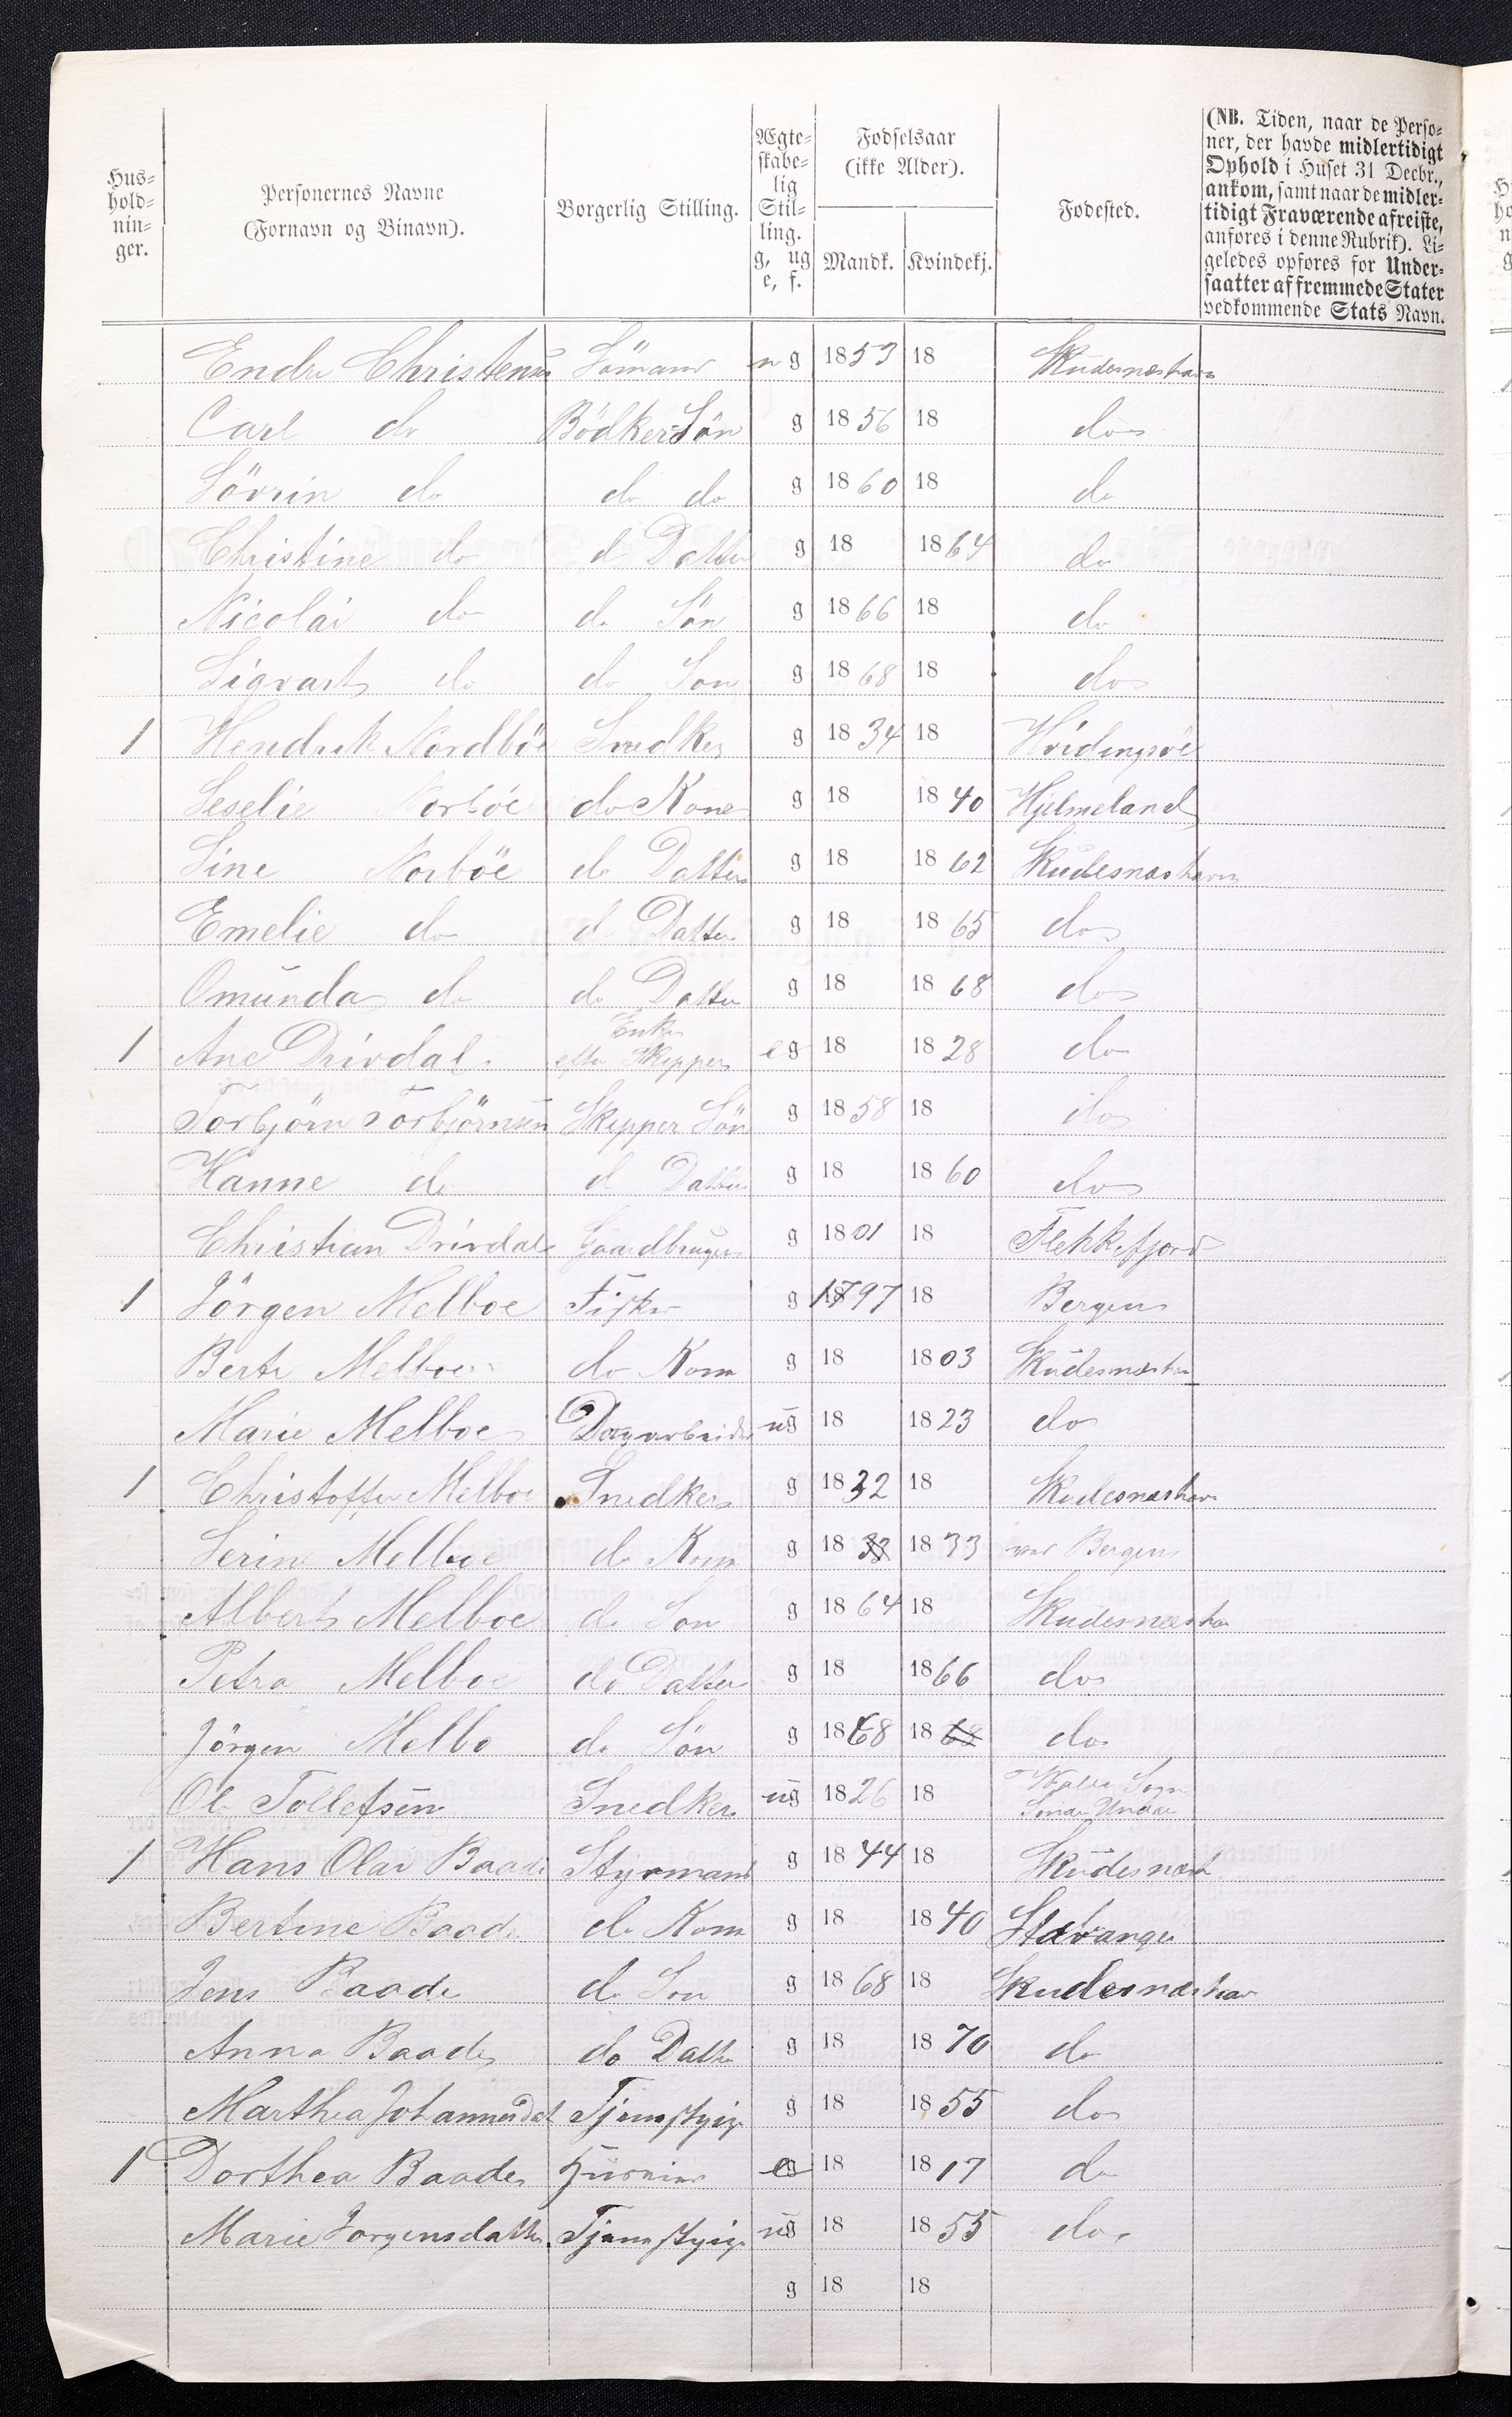 Hus-
hold-
nin-
ger.
Personernes Navne
(Fornavn og Binavn).
Borgerlig Stilling.
Ægte-
skabe-
lig
Stil-
ling.
g, ug
e, f.
Fødselsaar
(ikke Alder).
Mandk. Kvindekj.
Fødested.
(NB. Tiden, naar de Perso-
ner, der havde midlertidigt
Ophold i Huset 31 Decbr.,
ankom, samt naar de midler-
tidigt Fraværende afreiste,
anføres i denne Rubrik). Li-
geledes opføres for Under-
saatter af fremmede Stater
vedkommende Stats Navn.
Endre Christensen Sömand ug 1853 18 Skudesneshavn
Carl do Bödker Sön g 1856 18 do
Sövrin do do do g 1860 18 do
Christine do do Datter g 18 1864 do
Nicolai do do Sön g 1866 18 do
Sigvart do do Son g 1868 18 do
1 Hendrik Nordböe Snedker g 1834 18 Hvidingsöe
Seselie Norböe do Kone g 18 1840 Hjelmeland
Sine Norböe do Datter g 18 1862 Skudesneshavn
Emelie do do Datter g 18 1865 do
Omunda do do Datter g 18 1868 do
1 Ane Drivdal Enke efter Skipper eg 18 1828 do
Torbjörn Torbjörnsen Skipper Sön g 1858 18 do
Hanne do do Datter g 18 1860 do
Christian Drivdal Gaardbruger g 1801 18 Flekkefjord
1 Jörgen Melboe Fisker g 1797 18 Bergen
Berte Melboe do Kone g 18 1803 Skudesneshavn
Marie Melboe Dagarbeider ug 18 1823 do
1 Christoffer Melboe Snedker g 1832 18 Skudesneshavn
Serine Melboe do Kone g 18 33 1833 ved Bergen
Albert Melboe do Son g 1864 18 Skudesneshavn
Petra Melboe do Datter g 18 1866 do
Jörgen Melbo do Sön g 1868 18 68 do
Ole Tollefsen Snedker ug 1826 18 Sogn
1 Hans Olai Baade Styrmand g 1844 18 Skudesnesh
Bertine Baade do Kone g 18 1840 Stavanger
Jens Baade do Son g 1868 18 Skudesneshavn
Anna Baade do Datter g 18 1870 do
Marthea Johannesdat Tjenestpige g 18 1855 do
1 Dorthea Baade eg 18 1817 do
Marie Jorgensdatter Tjenestpige ug 18 1855 do
g 18 18